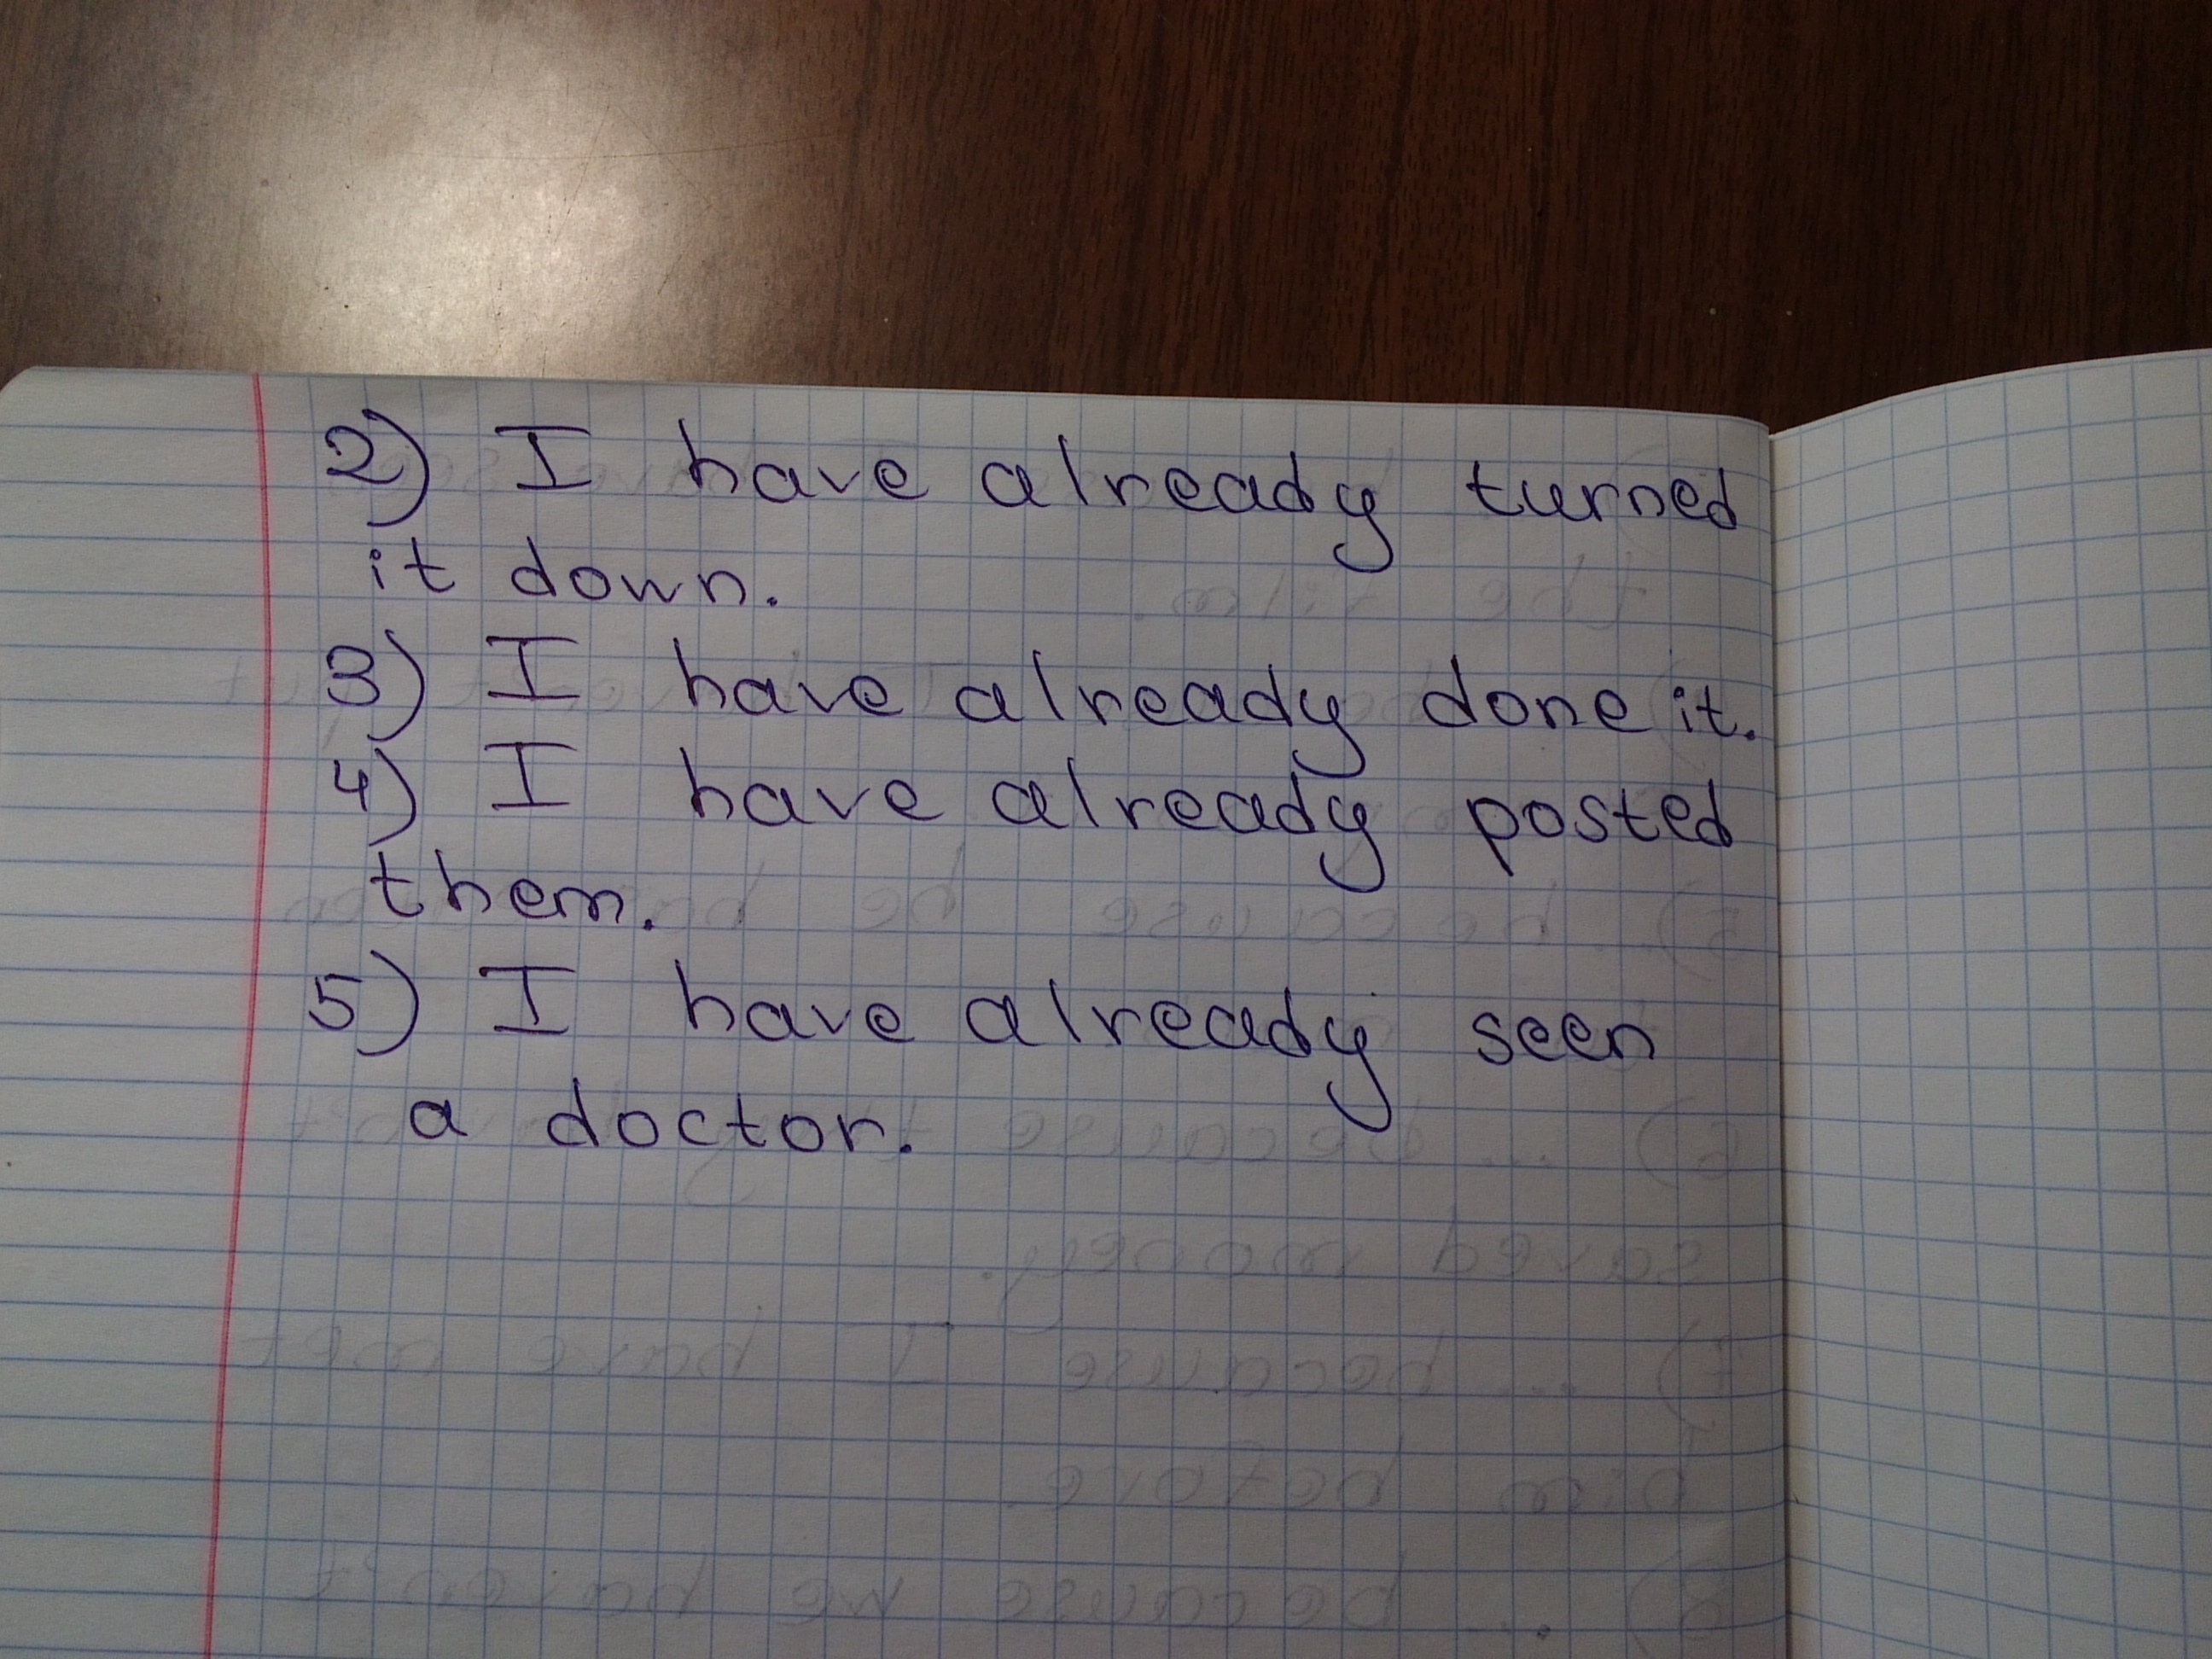 2) I have already turned
it down.
3) I have already done it.
4) I have already posted
them.
5) I have already seen
a doctor.